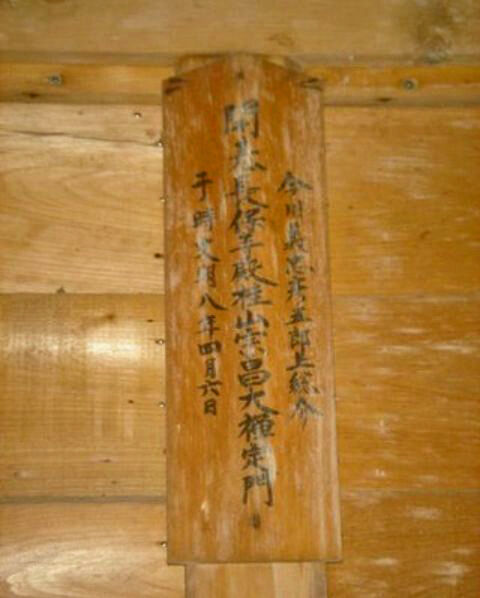 今川義忠彦五郎上総介
開基長保寺殿桂山宗昌大禅定門
于時文明八年四月六日